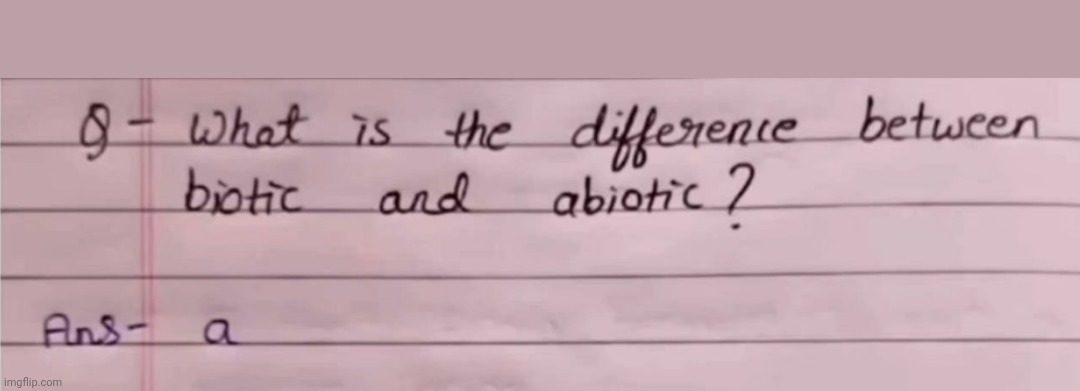 Q - What is the difference between
biotic and abiotic?
Ans- a
imgflip.com